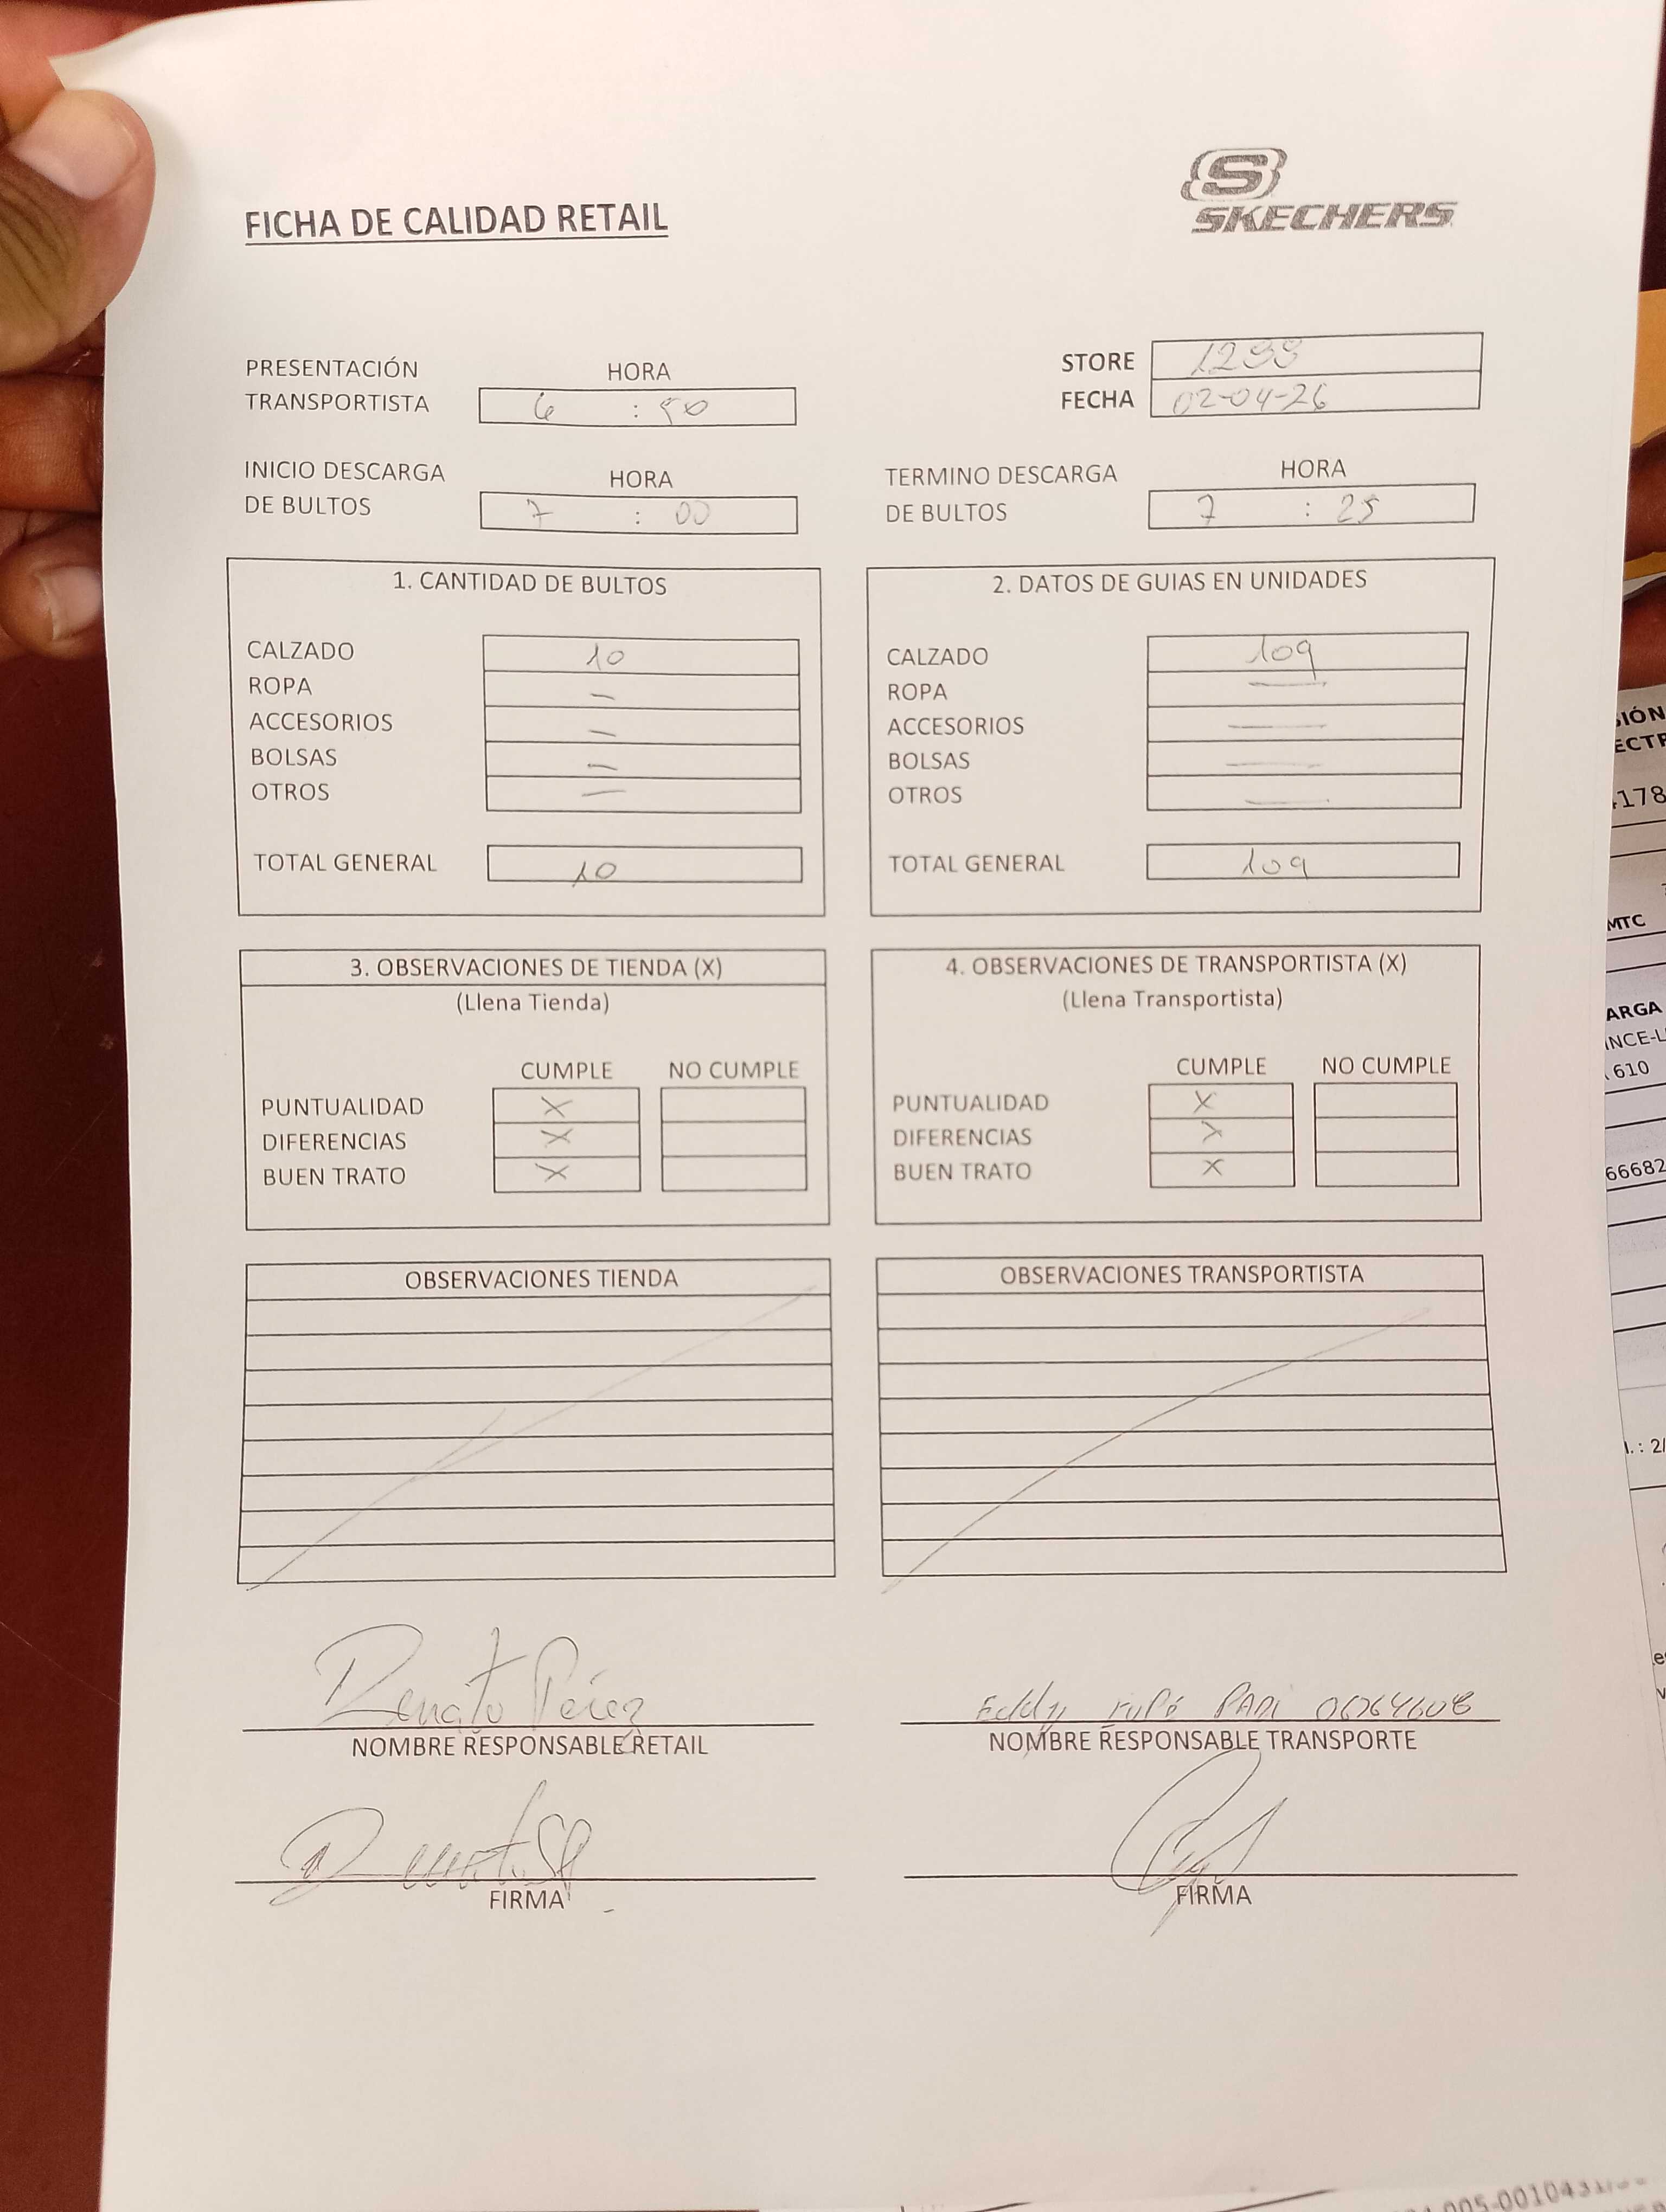 SKECHERS
FICHA DE CALIDAD RETAIL
PRESENTACIÓN TRANSPORTISTA HORA 6 : 50
STORE 1299
FECHA 02-04-26
INICIO DESCARGA DE BULTOS HORA 7 : 00
TERMINO DESCARGA DE BULTOS HORA 7 : 25
1. CANTIDAD DE BULTOS
CALZADO 10
ROPA —
ACCESORIOS —
BOLSAS —
OTROS —
TOTAL GENERAL 10
2. DATOS DE GUIAS EN UNIDADES
CALZADO 109
ROPA —
ACCESORIOS —
BOLSAS —
OTROS —
TOTAL GENERAL 109
3. OBSERVACIONES DE TIENDA (X)
(Llena Tienda)
CUMPLE NO CUMPLE
PUNTUALIDAD X
DIFERENCIAS X
BUEN TRATO X
4. OBSERVACIONES DE TRANSPORTISTA (X)
(Llena Transportista)
CUMPLE NO CUMPLE
PUNTUALIDAD X
DIFERENCIAS X
BUEN TRATO X
OBSERVACIONES TIENDA
OBSERVACIONES TRANSPORTISTA
Renato Pérez
NOMBRE RESPONSABLE RETAIL
FIRMA
Eddy
NOMBRE RESPONSABLE TRANSPORTE
FIRMA
MTC
610
66682